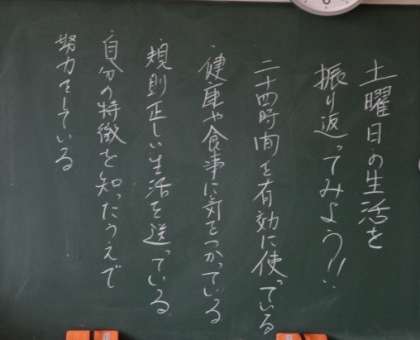 土曜日の生活を
振り返ってみよう!!
二十四時間を有効に使っている
健康や食事に気をつかっている
規則正しい生活を送っている
自分の特徴を知ったうえで
努力をしている